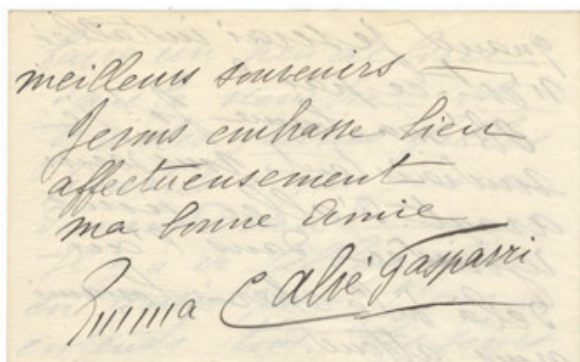 meilleurs souvenirs —
Je vous embrasse bien
affectueusement
ma bonne amie
Emma Calvé Gasparri